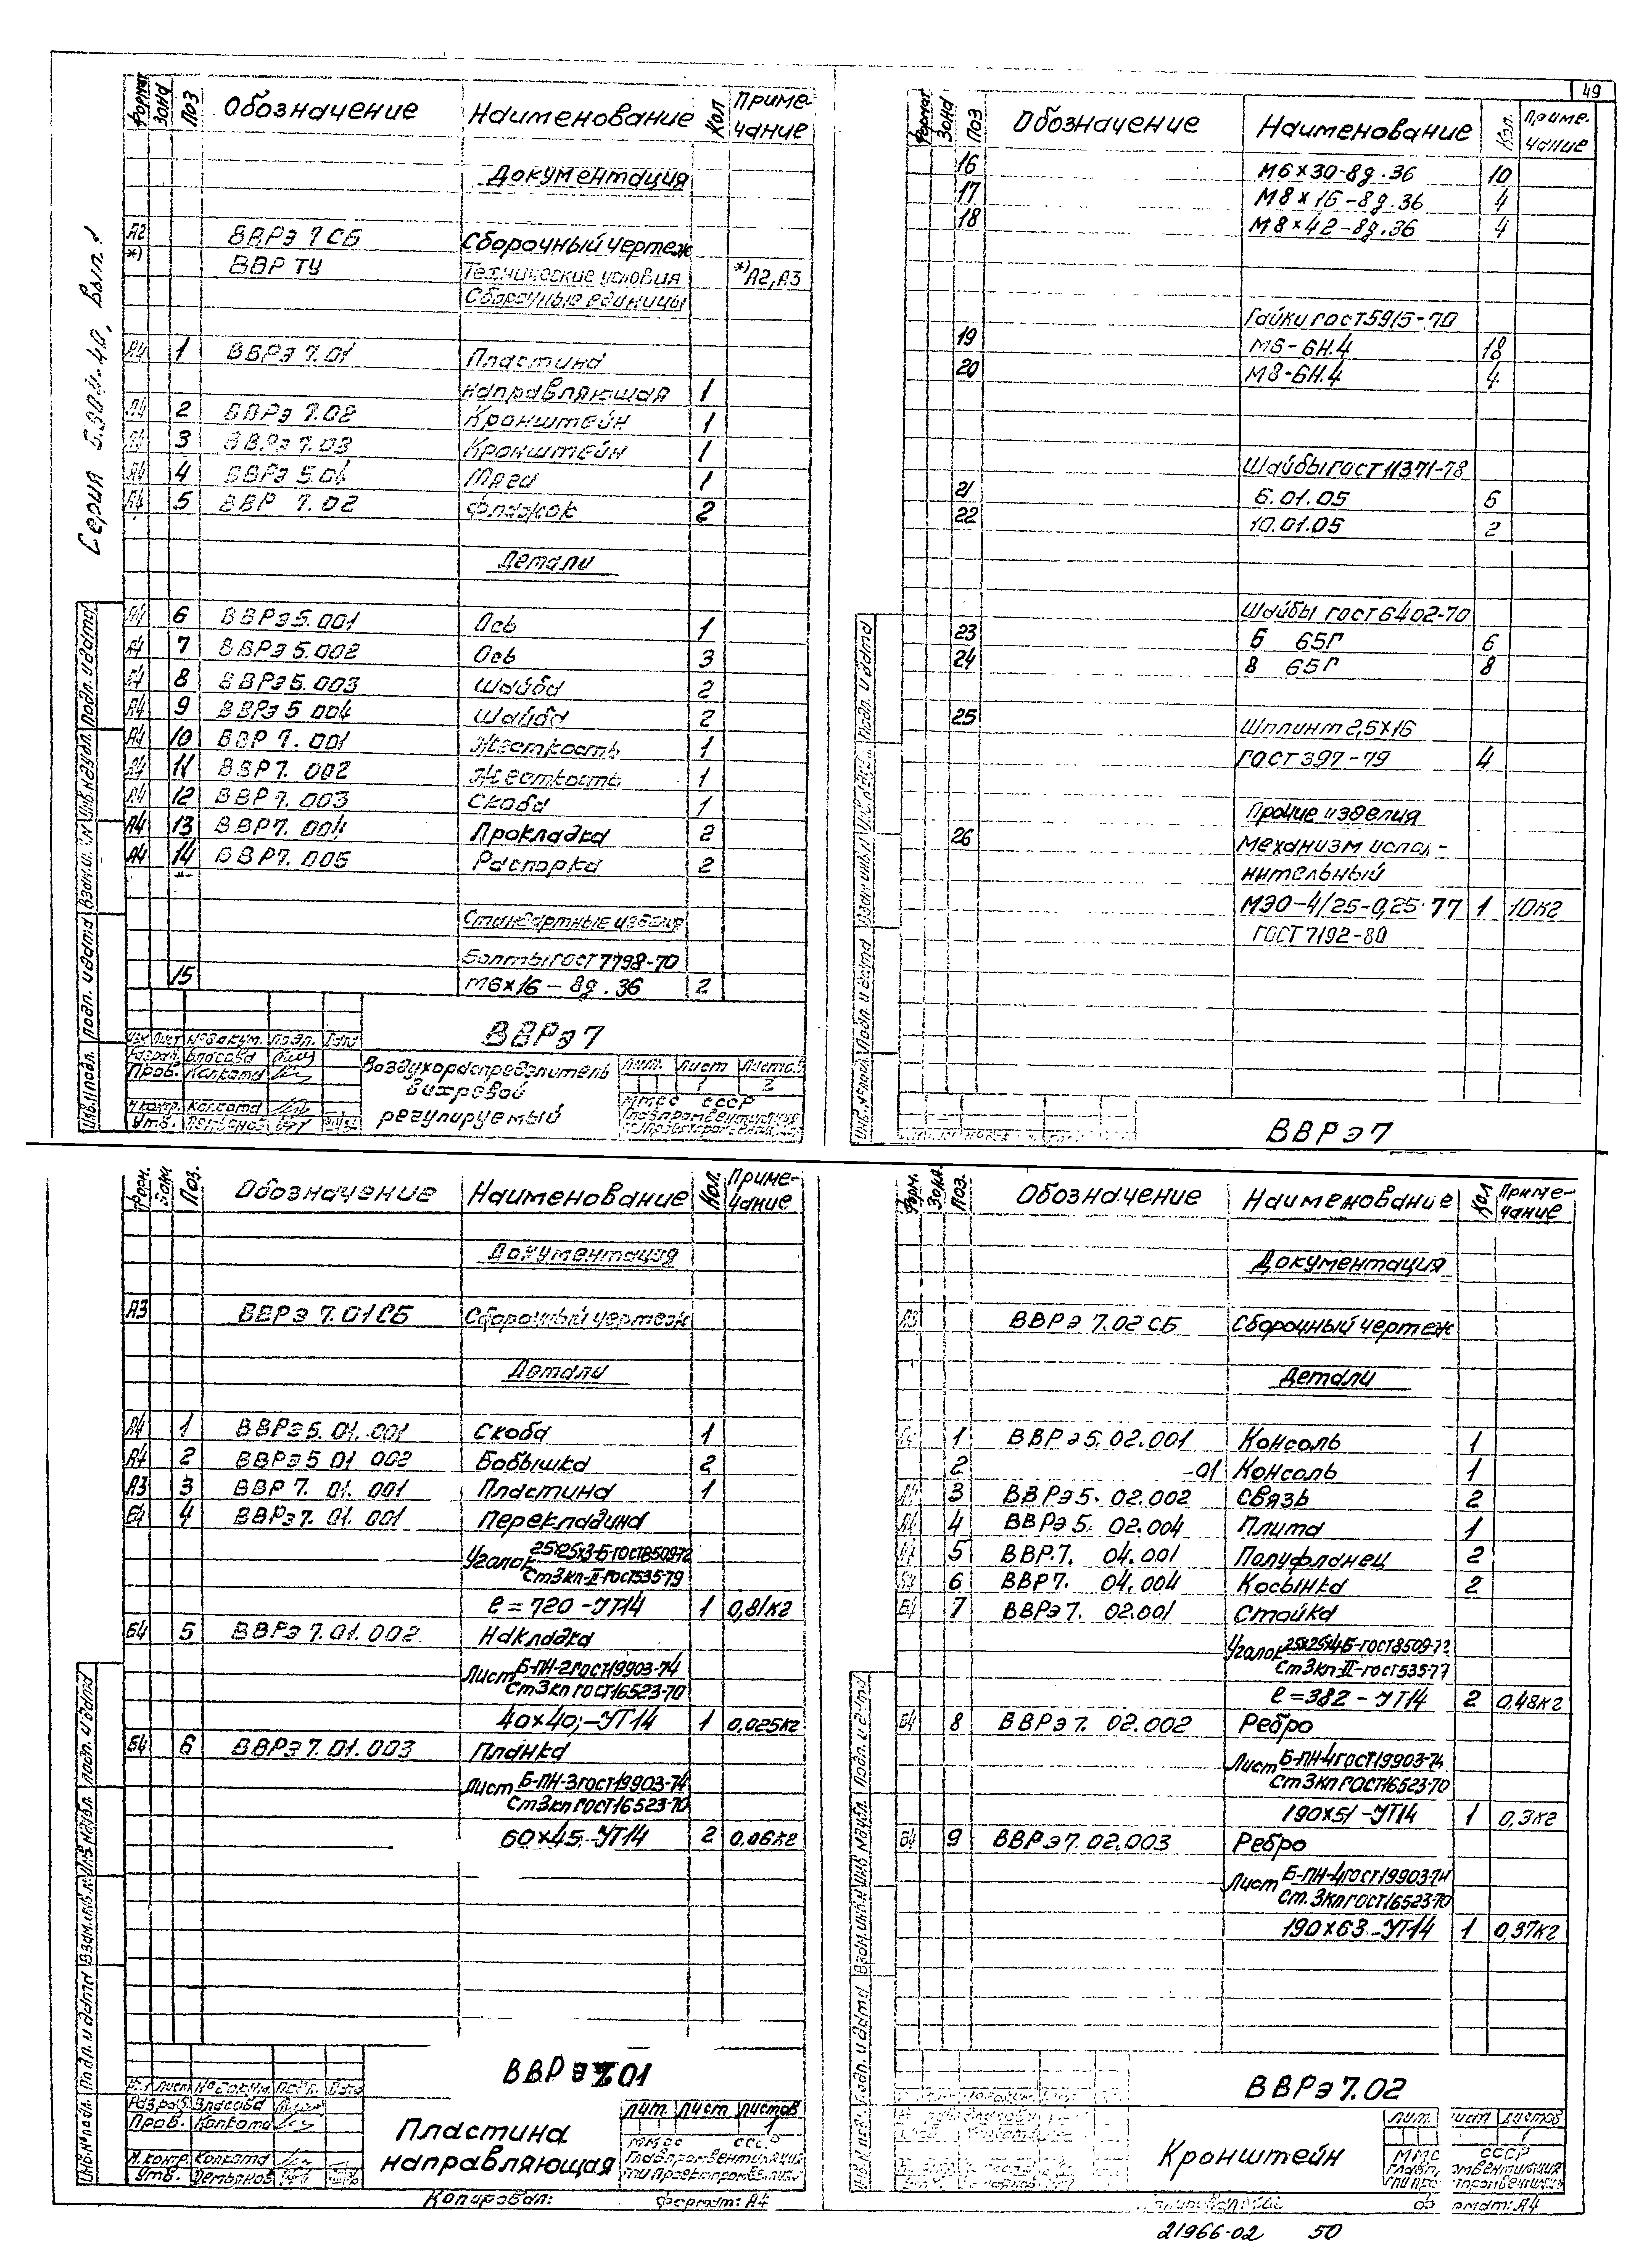 49
Серия 5.904-40, Вып.1
Формат Зона Поз Обозначение Наименование Кол Приме-
чание
Документация
А2 ВВРэ 7 СБ Сборочный чертеж
*) ВВР ТУ Технические условия *)А2,А3
Сборочные единицы
А4 1 ВВРэ 7.01 Пластина
направляющая 1
А4 2 ВВРэ 7.02 Кронштейн 1
А4 3 ВВРэ 7.03 Кронштейн 1
А4 4 ВВРэ 5.04 Тяга 1
А4 5 ВВР 7.02 Флажок 2
Детали
А4 6 ВВРэ5.001 Ось 1
Б4 7 ВВРэ5.002 Ось 3
Б4 8 ВВРэ5.003 Шайба 2
А4 9 ВВРэ 5 004 Шайба 2
А4 10 ВВР 7.001 Жесткость 1
А4 11 ВВР7.002 Жесткость 1
А4 12 ВВР7.003 Скоба 1
А4 13 ВВР7.004 Прокладка 2
А4 14 ВВР7.005 Распорка 2
Стандартные изделия
Болты ГОСТ 7798-70
15 М6×16-8g.36 2
ВВРэ7
Воздухораспределитель
вихревой
регулируемый
Изм Лист №докум. Подп. Дата
Разраб. Власова
Пров. Колката
Н.контр. Колката
Утв. Демьянов
Лит. Лист Листов
1 2
ММСС СССР
Главпромвентиляция
Инв.№подл. Подп. и дата Взам.инв.№ Инв.№дубл. Подп. и дата
Формат Зона Поз Обозначение Наименование Кол. Приме-
чание
16 М6×30-8g.36 10
17 М8×16-8g.36 4
18 М8×42-8g.36 4
Гайки ГОСТ5915-70
19 М6-6Н.4 18
20 М8-6Н.4 4
Шайбы ГОСТ 11371-78
21 6.01.05 6
22 10.01.05 2
Шайбы ГОСТ 6402-70
23 6 65Г 6
24 8 65Г 8
25 Шплинт 2,5×16
ГОСТ 397-79 4
Прочие изделия
26 Механизм испол-
нительный
МЭО-4/25-0,25·77 1 10кг
ГОСТ 7192-80
ВВРэ7
Инв.№подл. Подп. и дата Взам.инв.№ Инв.№дубл. Подп. и дата
Форм. Зона Поз. Обозначение Наименование Кол. Приме-
чание
Документация
А3 ВВРэ 7.01СБ Сборочный чертеж
Детали
А4 1 ВВРэ5.01.001 Скоба 1
А4 2 ВВРэ5 01 002 Бобышка 2
А3 3 ВВР 7. 01. 001 Пластина 1
Б4 4 ВВРэ7. 01. 001 Перекладина
Уголок 25×25×3-Б-ГОСТ8509-72
Ст3кп-II-ГОСТ535-79
ℓ=720-УТ14 1 0,81кг
Б4 5 ВВРэ 7.01.002 Накладка
Лист Б-ПН-2ГОСТ19903-74
Ст3кп ГОСТ16523-70
40×40;-УТ14 1 0,025кг
Б4 6 ВВРэ7.01.003 Планка
Лист Б-ПН-3ГОСТ19903-74
Ст3кп ГОСТ16523-70
60×45;-УТ14 2 0,06кг
ВВРэ7.01
Пластина
направляющая
Изм Лист №докум. Подп. Дата
Разраб. Власова
Пров. Колката
Н.контр. Колката
Утв. Демьянов
Лит. Лист Листов
1
ММСС СССР
Главпромвентиляция
ГПИПроектпромвентиляция
Копировал: Формат: А4
Инв.№подл. Подп. и дата Взам.инв.№ Инв.№дубл. Подп. и дата
Форм. Зона. Поз. Обозначение Наименование Кол Приме-
чание
Документация
А3 ВВРэ 7.02СБ Сборочный чертеж
Детали
1 ВВРэ5.02.001 Консоль 1
2 -01 Консоль 1
3 ВВРэ5. 02.002 Связь 2
А4 4 ВВРэ5. 02.004 Плита 1
5 ВВР.7. 04.001 Полуфланец 2
6 ВВР7. 04.004 Косынка 2
Б4 7 ВВРэ7. 02.001 Стойка
Уголок 25×25×4-Б-ГОСТ8509-72
Ст3кп-II-ГОСТ535-77
ℓ=382-УТ14 2 0,48кг
Б4 8 ВВРэ7. 02.002 Ребро
Лист Б-ПН-4ГОСТ19903-74
Ст3кп ГОСТ16523-70
190×51-УТ14 1 0,3кг
Б4 9 ВВРэ7.02.003 Ребро
Лист Б-ПН-4ГОСТ19903-74
Ст.3кп ГОСТ16523-70
190×63-УТ14 1 0,37кг
ВВРэ7.02
Кронштейн
Лит. Лист Листов
1
Инв.№подл. Подп. и дата Взам.инв.№ Инв.№дубл. Подп. и дата
21966-02 50